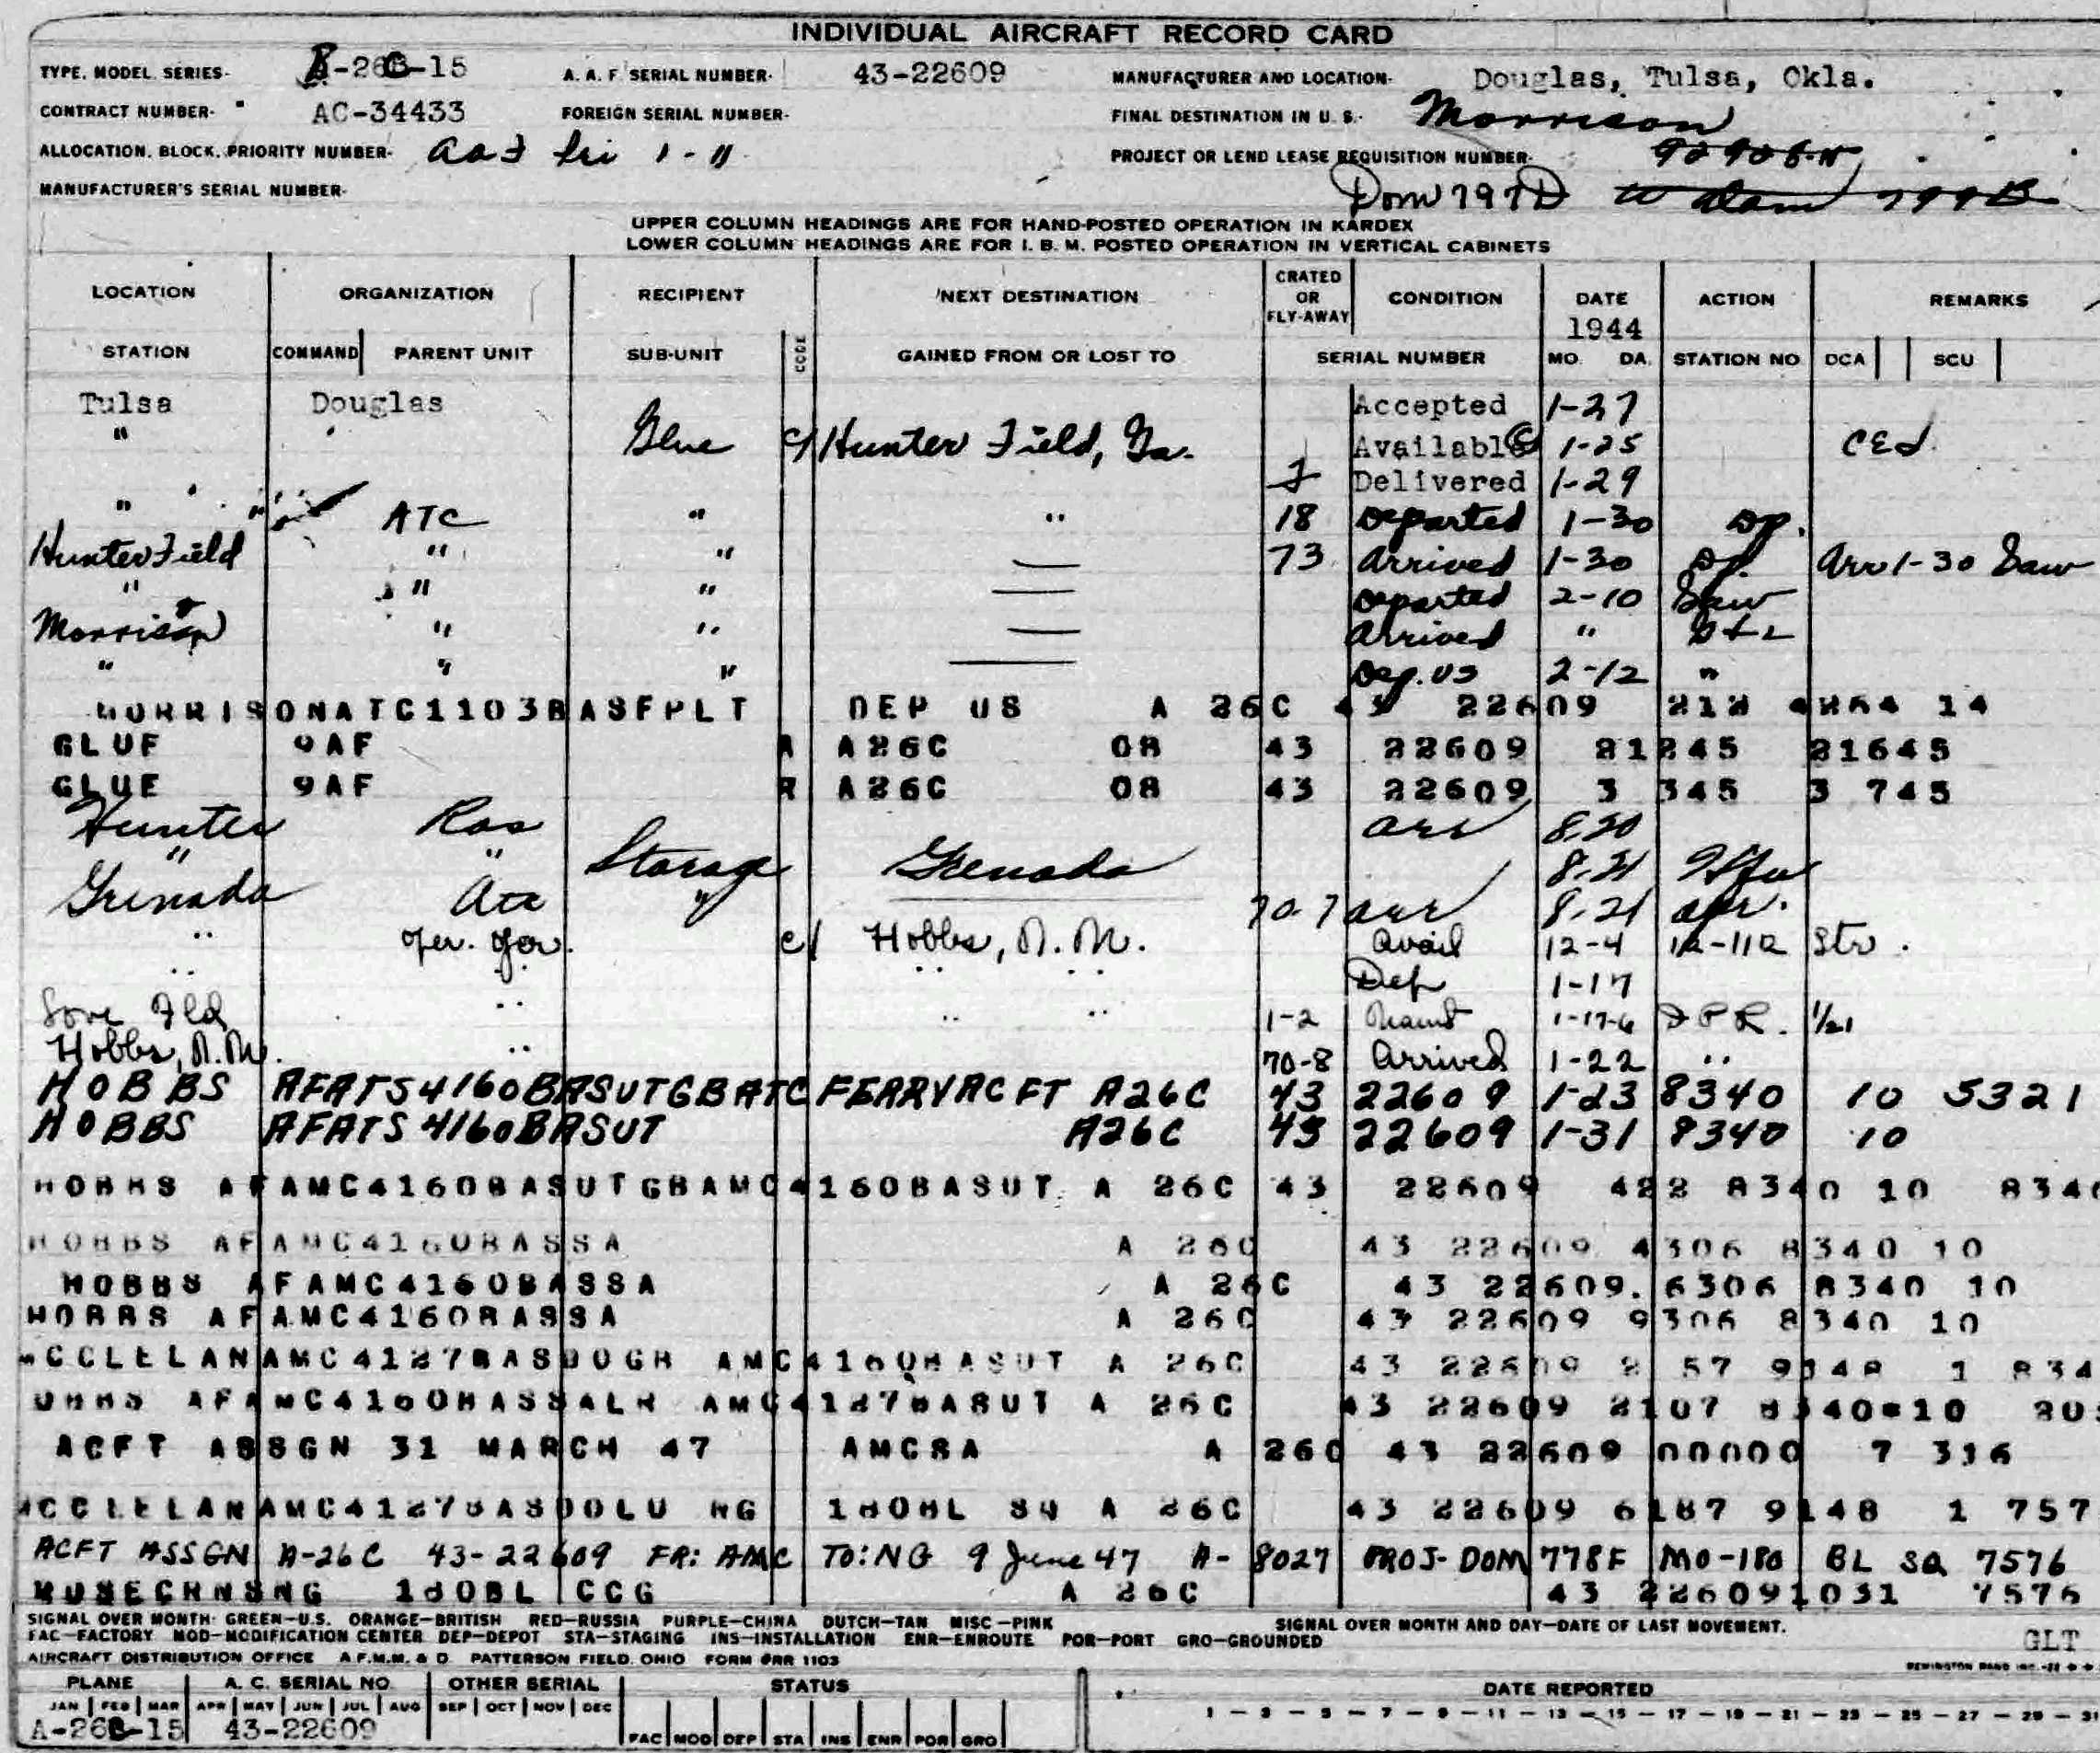 INDIVIDUAL AIRCRAFT RECORD CARD
TYPE, MODEL, SERIES- A-26C-15 A. A. F. SERIAL NUMBER- 43-22609 MANUFACTURER AND LOCATION- Douglas, Tulsa, Okla.
CONTRACT NUMBER- AC-34433 FOREIGN SERIAL NUMBER- FINAL DESTINATION IN U. S.- Morrison
ALLOCATION, BLOCK, PRIORITY NUMBER- 1-11 PROJECT OR LEND LEASE REQUISITION NUMBER-
MANUFACTURER'S SERIAL NUMBER- Dom 797D
UPPER COLUMN HEADINGS ARE FOR HAND-POSTED OPERATION IN KARDEX
LOWER COLUMN HEADINGS ARE FOR I. B. M. POSTED OPERATION IN VERTICAL CABINETS
LOCATION ORGANIZATION RECIPIENT NEXT DESTINATION CRATED OR FLY-AWAY CONDITION DATE 1944 ACTION REMARKS
STATION COMMAND PARENT UNIT SUB-UNIT CODE GAINED FROM OR LOST TO SERIAL NUMBER MO. DA. STATION NO DCA SCU
Tulsa Douglas Accepted 1-27
" Glue c/ Hunter Field, Ga. Available 1-25 CEd
" Delivered 1-29
" ATC " " 18 Departed 1-30 Dp.
Hunter Field " " — 73 Arrived 1-30 Dp. Arr 1-30 Saw
" " " — Departed 2-10 Saw
Morrison " " — Arrived "
" " " — Dep. US 2-12 "
MORRISONATC1103BASFPLT DEP US A 26C 43 22609 212 4264 14
GLUE 9AF A A26C 08 43 22609 21245 21645
GLUE 9AF R A26C 08 43 22609 3 345 3 745
Hunter arr 8-20
" " Storage Grenada 8-21
Grenada " 70-7 arr 8-21
" c/ Hobbs, N.M. Avail 12-4 12-112 Str.
" " " " Dep 1-17
Love Fld " " " 1-2 1-17-6 1/21
Hobbs, N.M. " 70-8 Arrived 1-22 "
HOBBS AFATS4160BASUTGBATC FERRYACFT A26C 43 22609 1-23 8340 10 5321
HOBBS AFATS 4160BASUT A26C 43 22609 1-31 8340 10
HOBBS AFAMC4160BASUTGBAMC4160BASUT A 26C 43 22609 422 8340 10 834
HOBBS AFAMC4160BASSA A 26C 43 22609 4306 8340 10
HOBBS AFAMC4160BASSA A 26C 43 22609 6306 8340 10
HOBBS AFAMC4160BASSA A 26C 43 22609 9306 8340 10
MCCLELANAMC4127BASDOGB AMC4160BASUT A 26C 43 22609 2 57 9148 1 834
OBBS AFAMC4160BASSALR AMC4127BASUT A 26C 43 22609 2107 8340 10
ACFT ASSGN 31 MARCH 47 AMCSA A 26C 43 22609 00000 7 316
MCCLELANAMC4127BASDOLU NG 180BL SQ A 26C 43 22609 6187 9148 1 757
ACFT ASSGN A-26C 43-22609 FR: AMC TO: NG 9 June 47 A-8027 PROJ-DOM 778F MO-180 BL SQ 7576
ROSECRNSNG 180BL CCG A 26C 43 226091031 7576
SIGNAL OVER MONTH- GREEN—U.S. ORANGE—BRITISH RED—RUSSIA PURPLE—CHINA DUTCH—TAN MISC—PINK SIGNAL OVER MONTH AND DAY—DATE OF LAST MOVEMENT.
FAC—FACTORY MOD—MODIFICATION CENTER DEP—DEPOT STA—STAGING INS—INSTALLATION ENR—ENROUTE POR—PORT GRO—GROUNDED GLT
AIRCRAFT DISTRIBUTION OFFICE A.F.M.M. & D. PATTERSON FIELD, OHIO FORM ORR 1103
PLANE A. C. SERIAL NO. OTHER SERIAL STATUS DATE REPORTED
JAN FEB MAR APR MAY JUN JUL AUG SEP OCT NOV DEC 1 — 3 — 5 — 7 — 9 — 11 — 13 — 15 — 17 — 19 — 21 — 23 — 25 — 27 — 29 — 31
A-26C-15 43-22609 FAC MOD DEP STA INS ENR POR GRO